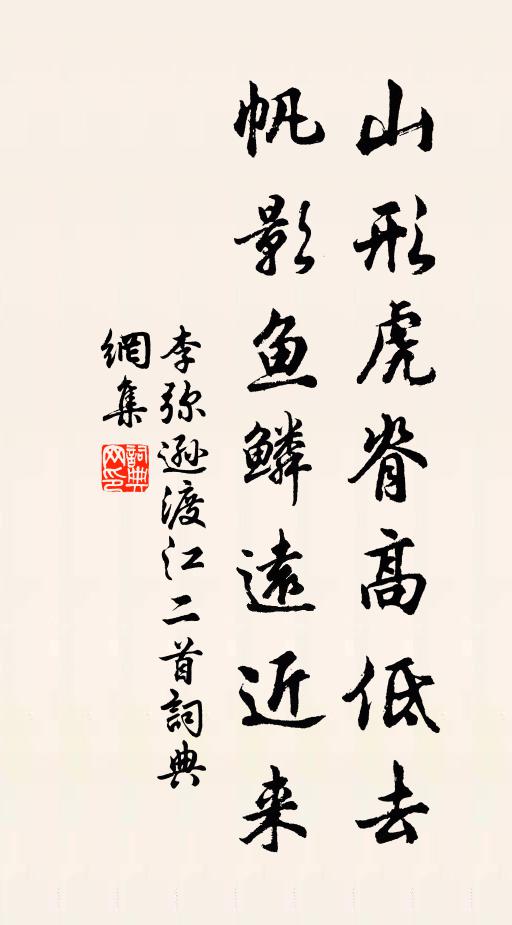 山形虎脊高低去
帆影鱼鳞遠近来
李弥遜渡江二首詞典
網集
詞典网印